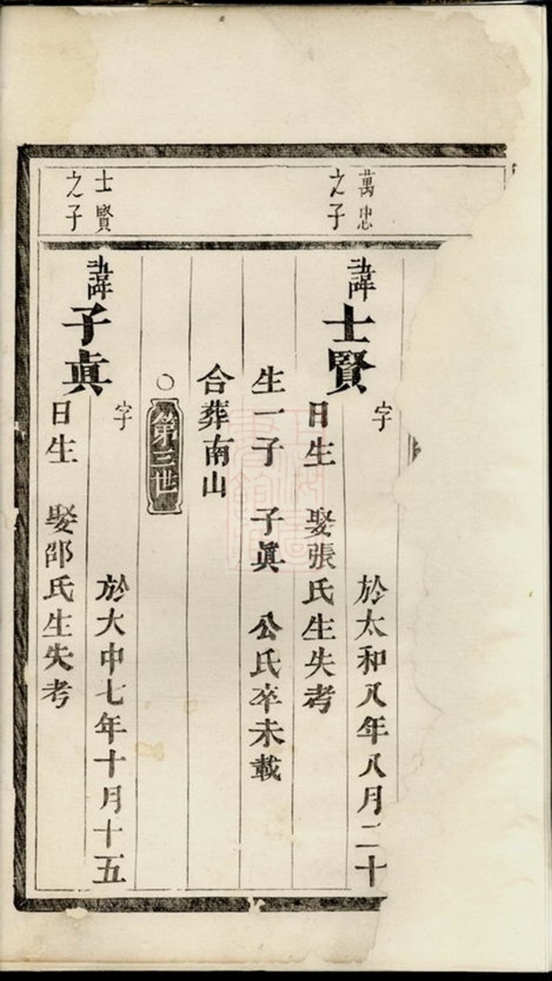 萬忠
之子
諱士賢
字 於太和八年八月二十
日生 娶張氏生失考
生一子 子眞 公氏卒未載
合葬南山
○第三世
士賢
之子
諱子眞
字 於大中七年十月十五
日生 娶邵氏生失考